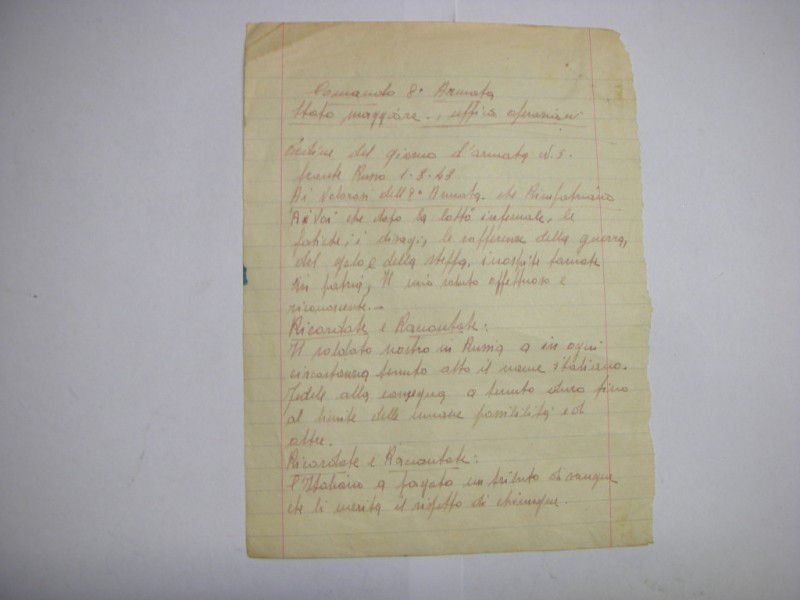 Comando 8ª Armata
Stato maggiore., uffica operazian
del giorno d'armata N. 5.
fronte Russo 1-3-43
Ai Valorosi dell'8ª Armata. che Rimpatriano
A Voi che dopo la lotta infernale, le
fatiche, i disagi, le sofferenze della guerra,
del gelo e della steppa. inospite tornate
in patria, Il mio saluto affettuoso e
riconoscente.-
Ricordate e Racontate:
Il soldato nostro in Russia a in ogni
circostanza tenuto alto il name italiano.
Fedele alla consegna a tenuto duro fino
al limite delle umane possibilità ed
altre.
Ricordate e Racontate:
l'Italiano a pagato un tributo di sangue
che li merita il rispetto di chiunque.